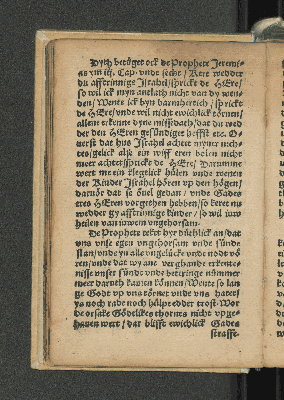 Dyth betüget ock de Prophete Jeremi-
as im iij. Cap. vnde secht / Kere wedder
du afftrünnige Israhel / sprickt de HEre /
so wil ick myn antlath nicht van dy wen-
den / Wente ick byn barmhertich / sprickt
de HEre / vnde wil nicht ewichlick törnen /
allein erkenne dyne missedaeth / dat du wed
der den HEren gesündiget heffst etc. O-
uerst dat hus Israhel achtet myner nich-
tes / gelick alse ein wiff eren bolen nicht
meer achtet / sprickt de HEre / Darumme
wert me ein klegelick hülen vnde wenen
der Kinder Israhel hören vp den högen /
darüm dat se öuel gedan / vnde Gades
eres HEren vorgethen hebben / so keret nu
wedder gy afftrünnige kinder / so wil iuw
heilen van iuwem vngehorsam.
De Prophete tehet hyr düdtlick an / dat
vns vnse egen vngehorsam vnde sünde
slan / vnde yn alle vngelücke vnde nodt vö
ren / vnde dat wy ane vorghande erkente-
nisse vnser sünde vnde beteringe nümmer
meer daruth kamen können / Wente so lan
ge Godt vp vns törnet vnde vns hatet /
ys noch radt noch hülpe edder trost. Wor
de orsake Gödtlikes thornes nicht vpge-
hauen wert / dar blifft ewichlick Gades
straffe